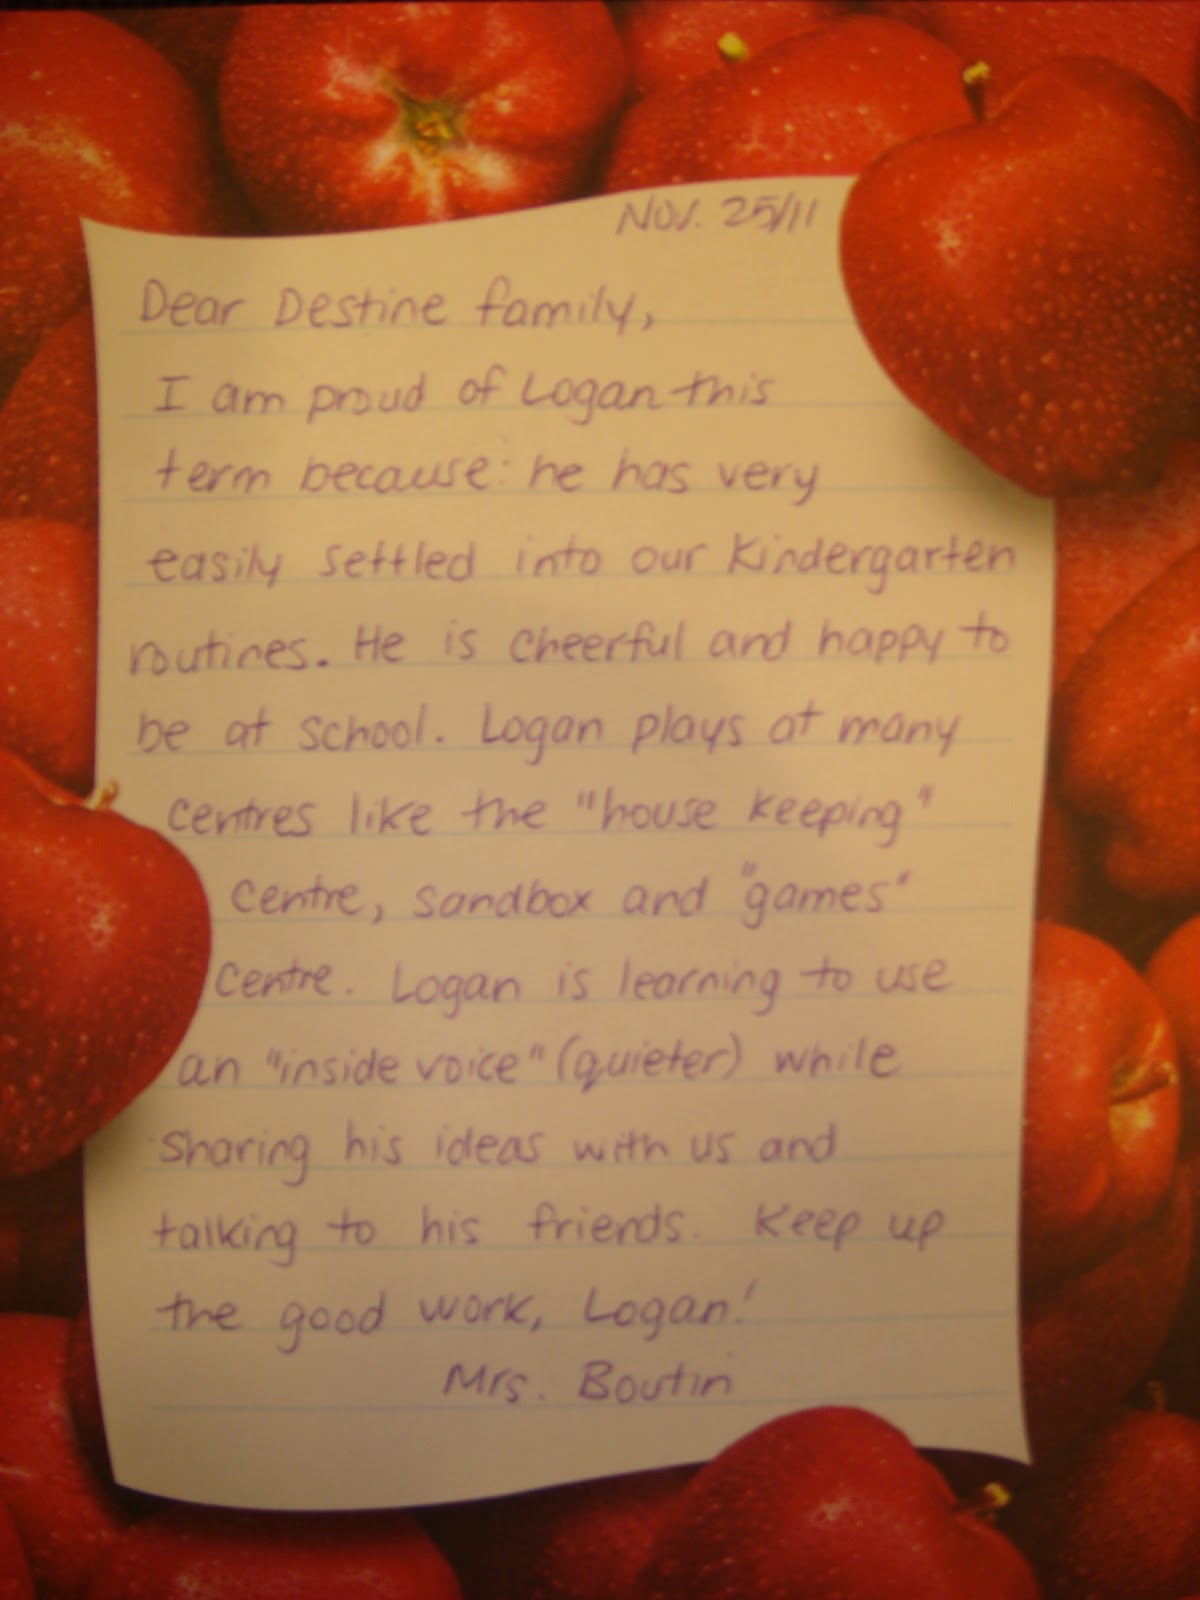 Nov. 25/11
Dear Destine family,
I am proud of Logan this
term because: he has very
easily settled into our Kindergarten
routines. He is cheerful and happy to
be at school. Logan plays at many
centres like the "house keeping"
centre, sandbox and "games"
centre. Logan is learning to use
an "inside voice" (quieter) while
sharing his ideas with us and
talking to his friends. Keep up
the good work, Logan!
Mrs. Boutin